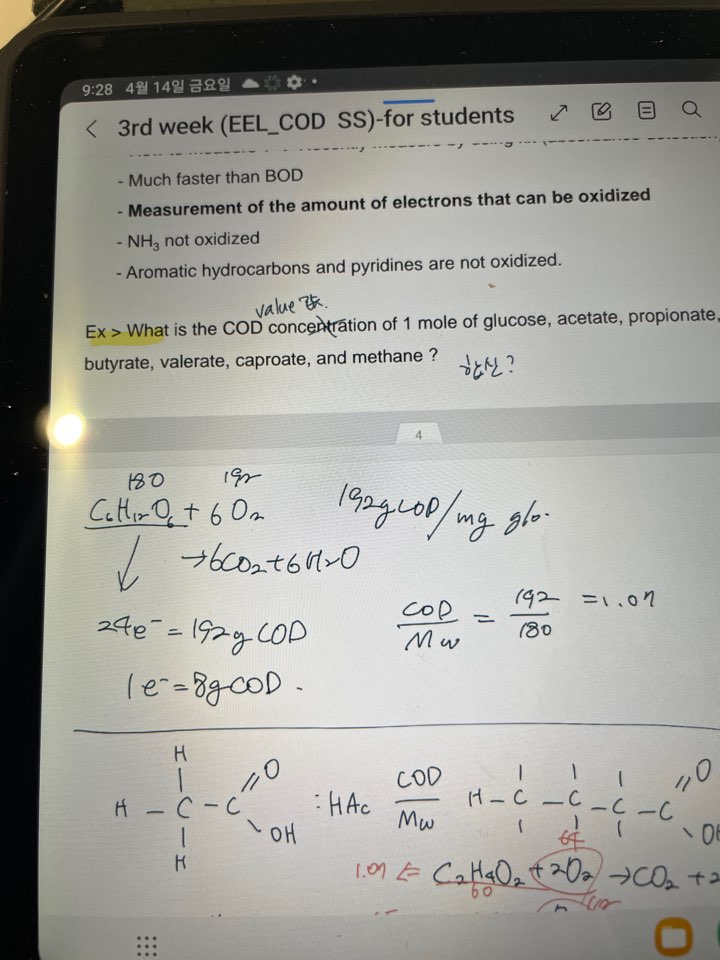 9:28 4월 14일 금요일
3rd week (EEL_COD SS)-for students
- Much faster than BOD
- Measurement of the amount of electrons that can be oxidized
- NH₃ not oxidized
- Aromatic hydrocarbons and pyridines are not oxidized.
value
Ex > What is the COD concentration of 1 mole of glucose, acetate, propionate,
butyrate, valerate, caproate, and methane ?
4
180 192
C₆H₁₂O₆ + 6O₂ 192gCOD/mg glo.
→6CO₂+6H₂O
24e⁻ = 192g COD
COD/Mw = 192/180 = 1.07
1e⁻ = 8gCOD.
H
H - C - C O
OH
H
: HAc COD/Mw
H - C - C - C - C O
64
1.07 ⇐ C₂H₄O₂ + 2O₂ → CO₂ + 2
60